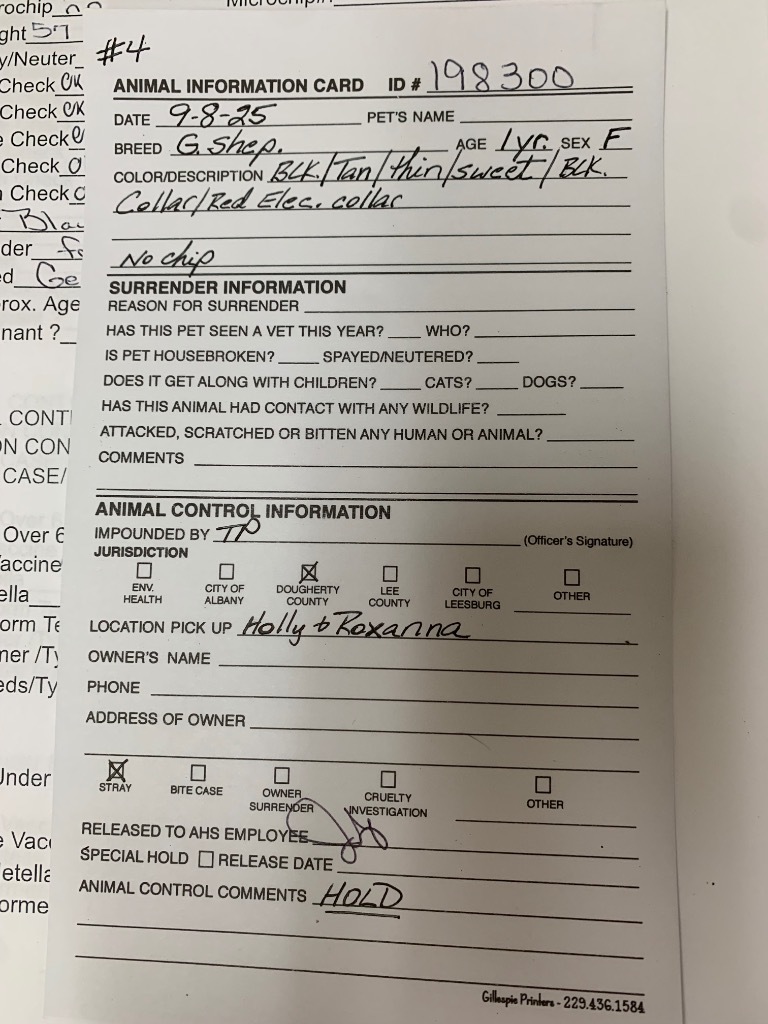 rochip no
Microchip#
ght 57
y/Neuter
Check OK
Check OK
Check
Check
Check
Bla
der
ed Ge
rox. Age
nant ?
CONT
ON CON
CASE/
Over 6
accine
ella
orm Te
ner /Ty
eds/Ty
Under
Vacc
etella
orme
#4
ANIMAL INFORMATION CARD ID # 198300
DATE 9-8-25 PET'S NAME
BREED G. Shep. AGE 1yr. SEX F
COLOR/DESCRIPTION BLK./Tan/thin/sweet/BLK.
Collar/Red Elec. collar
No chip
SURRENDER INFORMATION
REASON FOR SURRENDER
HAS THIS PET SEEN A VET THIS YEAR? WHO?
IS PET HOUSEBROKEN? SPAYED/NEUTERED?
DOES IT GET ALONG WITH CHILDREN? CATS? DOGS?
HAS THIS ANIMAL HAD CONTACT WITH ANY WILDLIFE?
ATTACKED, SCRATCHED OR BITTEN ANY HUMAN OR ANIMAL?
COMMENTS
ANIMAL CONTROL INFORMATION
IMPOUNDED BY TP (Officer's Signature)
JURISDICTION
ENV. HEALTH
CITY OF ALBANY
DOUGHERTY COUNTY
LEE COUNTY
CITY OF LEESBURG
OTHER
LOCATION PICK UP Holly & Roxanna
OWNER'S NAME
PHONE
ADDRESS OF OWNER
STRAY
BITE CASE
OWNER SURRENDER
CRUELTY INVESTIGATION
OTHER
RELEASED TO AHS EMPLOYEE
SPECIAL HOLD RELEASE DATE
ANIMAL CONTROL COMMENTS HOLD
Gillespie Printers - 229.436.1584